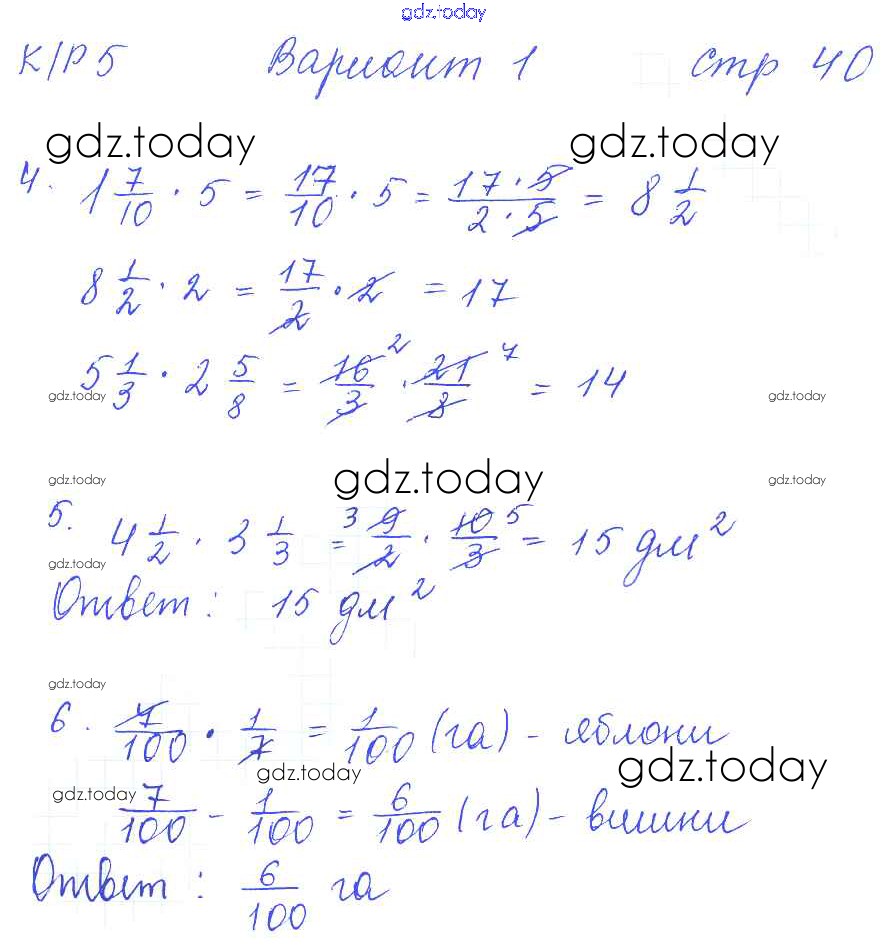 gdz.today
К/Р 5 Вариант 1 стр 40
gdz.today gdz.today
4. 1 7/10 · 5 = 17/10 · 5 = 17 · 5/2 · 5 = 8 1/2
8 1/2 · 2 = 17/2 · 2 = 17
5 1/3 · 2 5/8 = 16/3 2 · 21/8 7 = 14
gdz.today gdz.today
gdz.today gdz.today gdz.today
5. 4 1/2 · 3 1/3 = 3 9/2 · 10/3 5 = 15 дм²
gdz.today
Ответ: 15 дм²
gdz.today
6. 7/100 · 1/7 = 1/100 (га) - яблони
gdz.today gdz.today
gdz.today
7/100 - 1/100 = 6/100 (га) - вишни
Ответ: 6/100 га